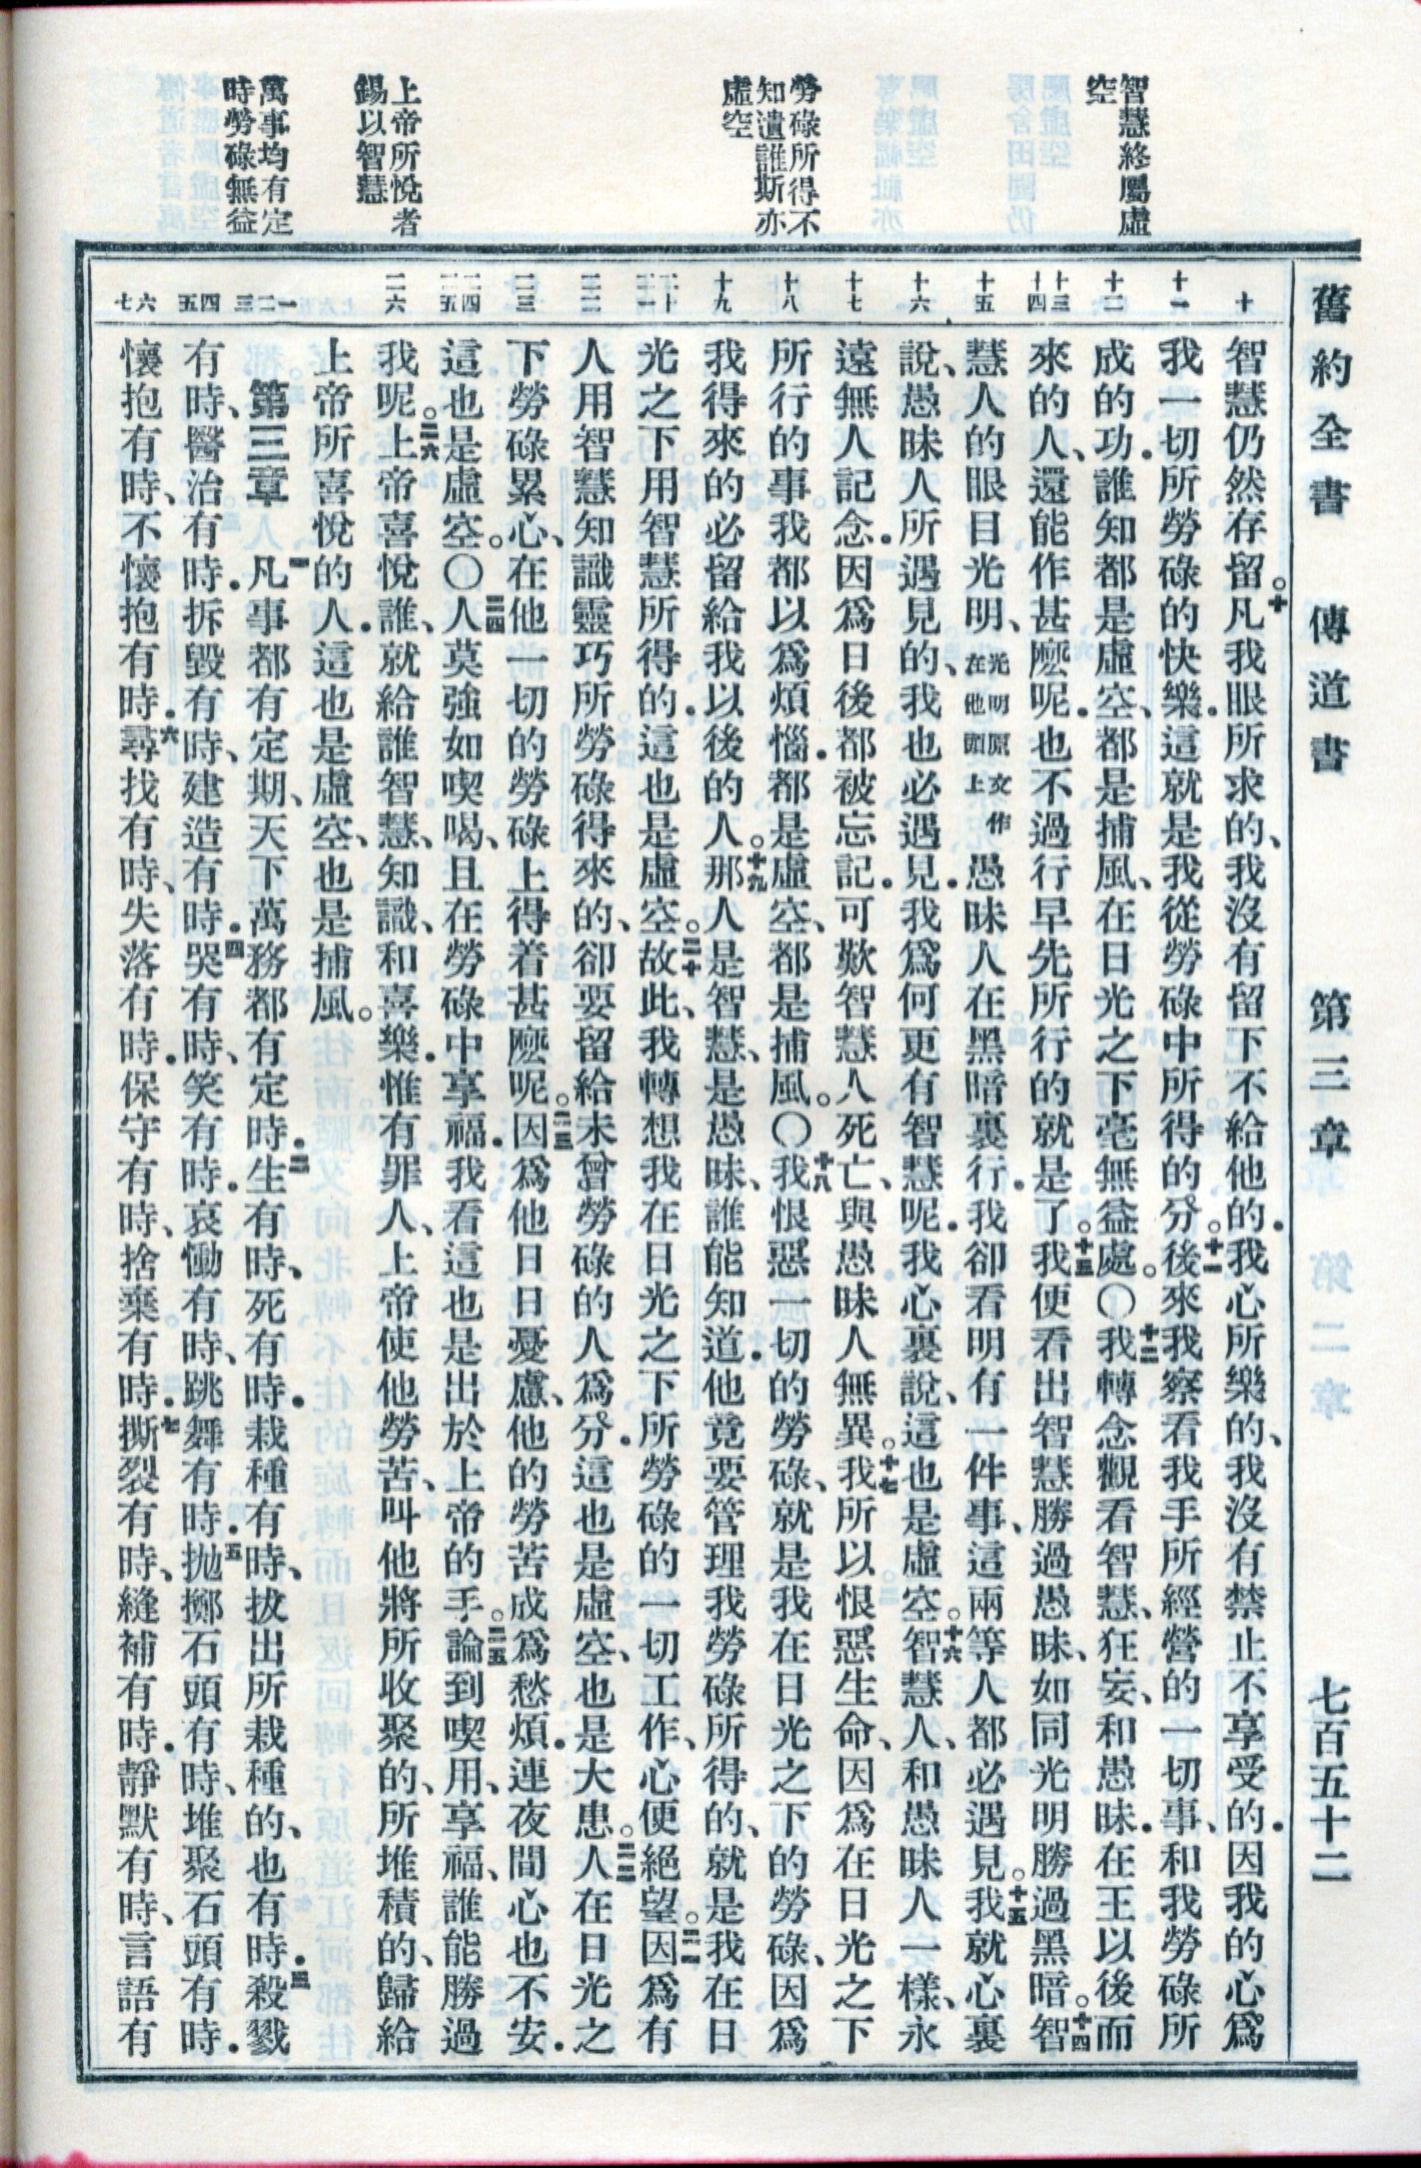 舊約全書 傳道書 第三章 七百五十二
智慧終屬虛
空
勞碌所得不
知遺誰斯亦
虛空
上帝所悅者
錫以智慧
萬事均有定
時勞碌無益
十
十一
十二
十三
十四
十五
十六
十七
十八
十九
二十
二一
二二
二三
二四
二五
二六
一
二
三
四
五
六
七
智慧仍然存留。十凡我眼所求的、我沒有留下不給他的．我心所樂的、我沒有禁止不享受的．因我的心爲
我一切所勞碌的快樂．這就是我從勞碌中所得的分。十一後來我察看我手所經營的一切事、和我勞碌所
成的功．誰知都是虛空、都是捕風、在日光之下毫無益處。〇十二我轉念觀看智慧、狂妄、和愚昧．在王以後而
來的人、還能作甚麽呢．也不過行早先所行的就是了。十三我便看出智慧勝過愚昧、如同光明勝過黑暗。十四智
慧人的眼目光明、光明原文作在他頭上 愚昧人在黑暗裏行．我卻看明有一件事、這兩等人都必遇見。十五我就心裏
說、愚昧人所遇見的、我也必遇見．我爲何更有智慧呢．我心裏說、這也是虛空。十六智慧人、和愚昧人一樣、永
遠無人記念．因爲日後都被忘記．可歎智慧人死亡、與愚昧人無異。十七我所以恨惡生命、因爲在日光之下
所行的事我都以爲煩惱．都是虛空、都是捕風。〇十八我恨惡一切的勞碌、就是我在日光之下的勞碌、因爲
我得來的必留給我以後的人。十九那人是智慧、是愚昧、誰能知道．他竟要管理我勞碌所得的、就是我在日
光之下用智慧所得的．這也是虛空。二十故此、我轉想我在日光之下所勞碌的一切工作、心便絕望。二一因爲有
人用智慧知識靈巧所勞碌得來的、卻要留給未曾勞碌的人爲分．這也是虛空、也是大患。二二人在日光之
下勞碌累心、在他一切的勞碌上得着甚麽呢。二三因爲他日日憂慮、他的勞苦成爲愁煩．連夜間心也不安．
這也是虛空。〇二四人莫強如喫喝、且在勞碌中享福．我看這也是出於上帝的手。二五論到喫用、享福、誰能勝過
我呢。二六上帝喜悅誰、就給誰智慧、知識、和喜樂．惟有罪人、上帝使他勞苦、叫他將所收聚的、所堆積的、歸給
上帝所喜悅的人．這也是虛空、也是捕風。
第三章 一凡事都有定期、天下萬務都有定時．二生有時、死有時．栽種有時、拔出所栽種的、也有時．三殺戮
有時、醫治有時．拆毀有時、建造有時．四哭有時、笑有時．哀慟有時、跳舞有時．五拋擲石頭有時、堆聚石頭有時．
懷抱有時、不懷抱有時．六尋找有時、失落有時．保守有時、捨棄有時．七撕裂有時、縫補有時．靜默有時、言語有